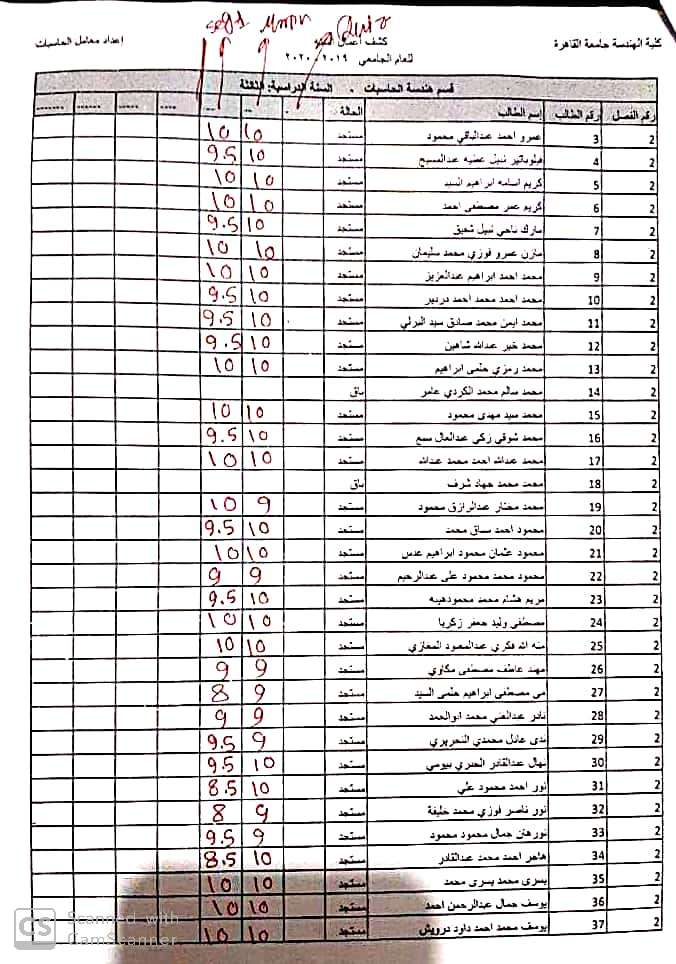 كلية الهندسة جامعة القاهرة كشف أعمال إعداد معامل الحاسبات
للعام الجامعي ٢٠١٩ ٢٠٢٠
قسم هندسة الحاسبات - السنة الدراسية: الثالثة
رقم الفصل رقم الطالب إسم الطالب الحالة
2 3 عمرو احمد عبدالباقي محمود مستجد 10 10
2 4 فيلوباتير نبيل عطيه عبدالمسيح مستجد 10 9.5
2 5 كريم اسامه ابراهيم السيد مستجد 10 10
2 6 كريم عمر مصطفى احمد مستجد 10 10
2 7 مارك ناجي نبيل شفيق مستجد 10 9.5
2 8 مازن عمرو فوزي محمد سليمان مستجد 10 10
2 9 محمد احمد ابراهيم عبدالعزيز مستجد 10 10
2 10 محمد احمد محمد احمد دردير مستجد 10 9.5
2 11 محمد ايمن محمد صادق سيد مستجد 10 9.5
2 12 محمد خير عبدالله شاهين مستجد 10 9.5
2 13 محمد رمزي حلمى ابراهيم مستجد 10 10
2 14 محمد سالم محمد الكردي عامر باق
2 15 محمد سيد مهدى محمود مستجد 10 10
2 16 محمد شوقي زكى عبدالعال سبع مستجد 10 9.5
2 17 محمد عبدالله احمد محمد عبدالله مستجد 10 10
2 18 محمد محمد جهاد شرف باق
2 19 محمد مختار عبدالرازق محمود مستجد 9 10
2 20 محمود احمد محمد مستجد 10 9.5
2 21 محمود عثمان محمود ابراهيم عدس مستجد 10 10
2 22 محمود محمد محمود على عبدالرحيم مستجد 9 9
2 23 مريم هشام محمد محمودهيبه مستجد 10 9.5
2 24 مصطفى وليد جعفر زكريا مستجد 10 10
2 25 منه الله فكري عبدالمعبود المغازي مستجد 10 10
2 26 مهند عاطف مصطفى مكاوي مستجد 9 9
2 27 مي مصطفى ابراهيم حلمى السيد مستجد 9 8
2 28 نادر عبدالغني محمد ابوالحمد مستجد 9 9
2 29 ندى عادل محمدي التحريري مستجد 9 9.5
2 30 نهال عبدالقادر بيومي مستجد 10 9.5
2 31 نور احمد محمود علي مستجد 10 8.5
2 32 نور ناصر فوزي محمد خليفة مستجد 9 8
2 33 نورهان جمال محمود محمود مستجد 9 9.5
2 34 هاجر احمد محمد عبدالقادر مستجد 10 8.5
2 35 يسرى محمد يسرى محمد مستجد 10 10
2 36 يوسف جمال عبدالرحمن احمد مستجد 10 10
2 37 يوسف محمد احمد داود درويش مستجد 10 10
CS Scanned with
CamScanner